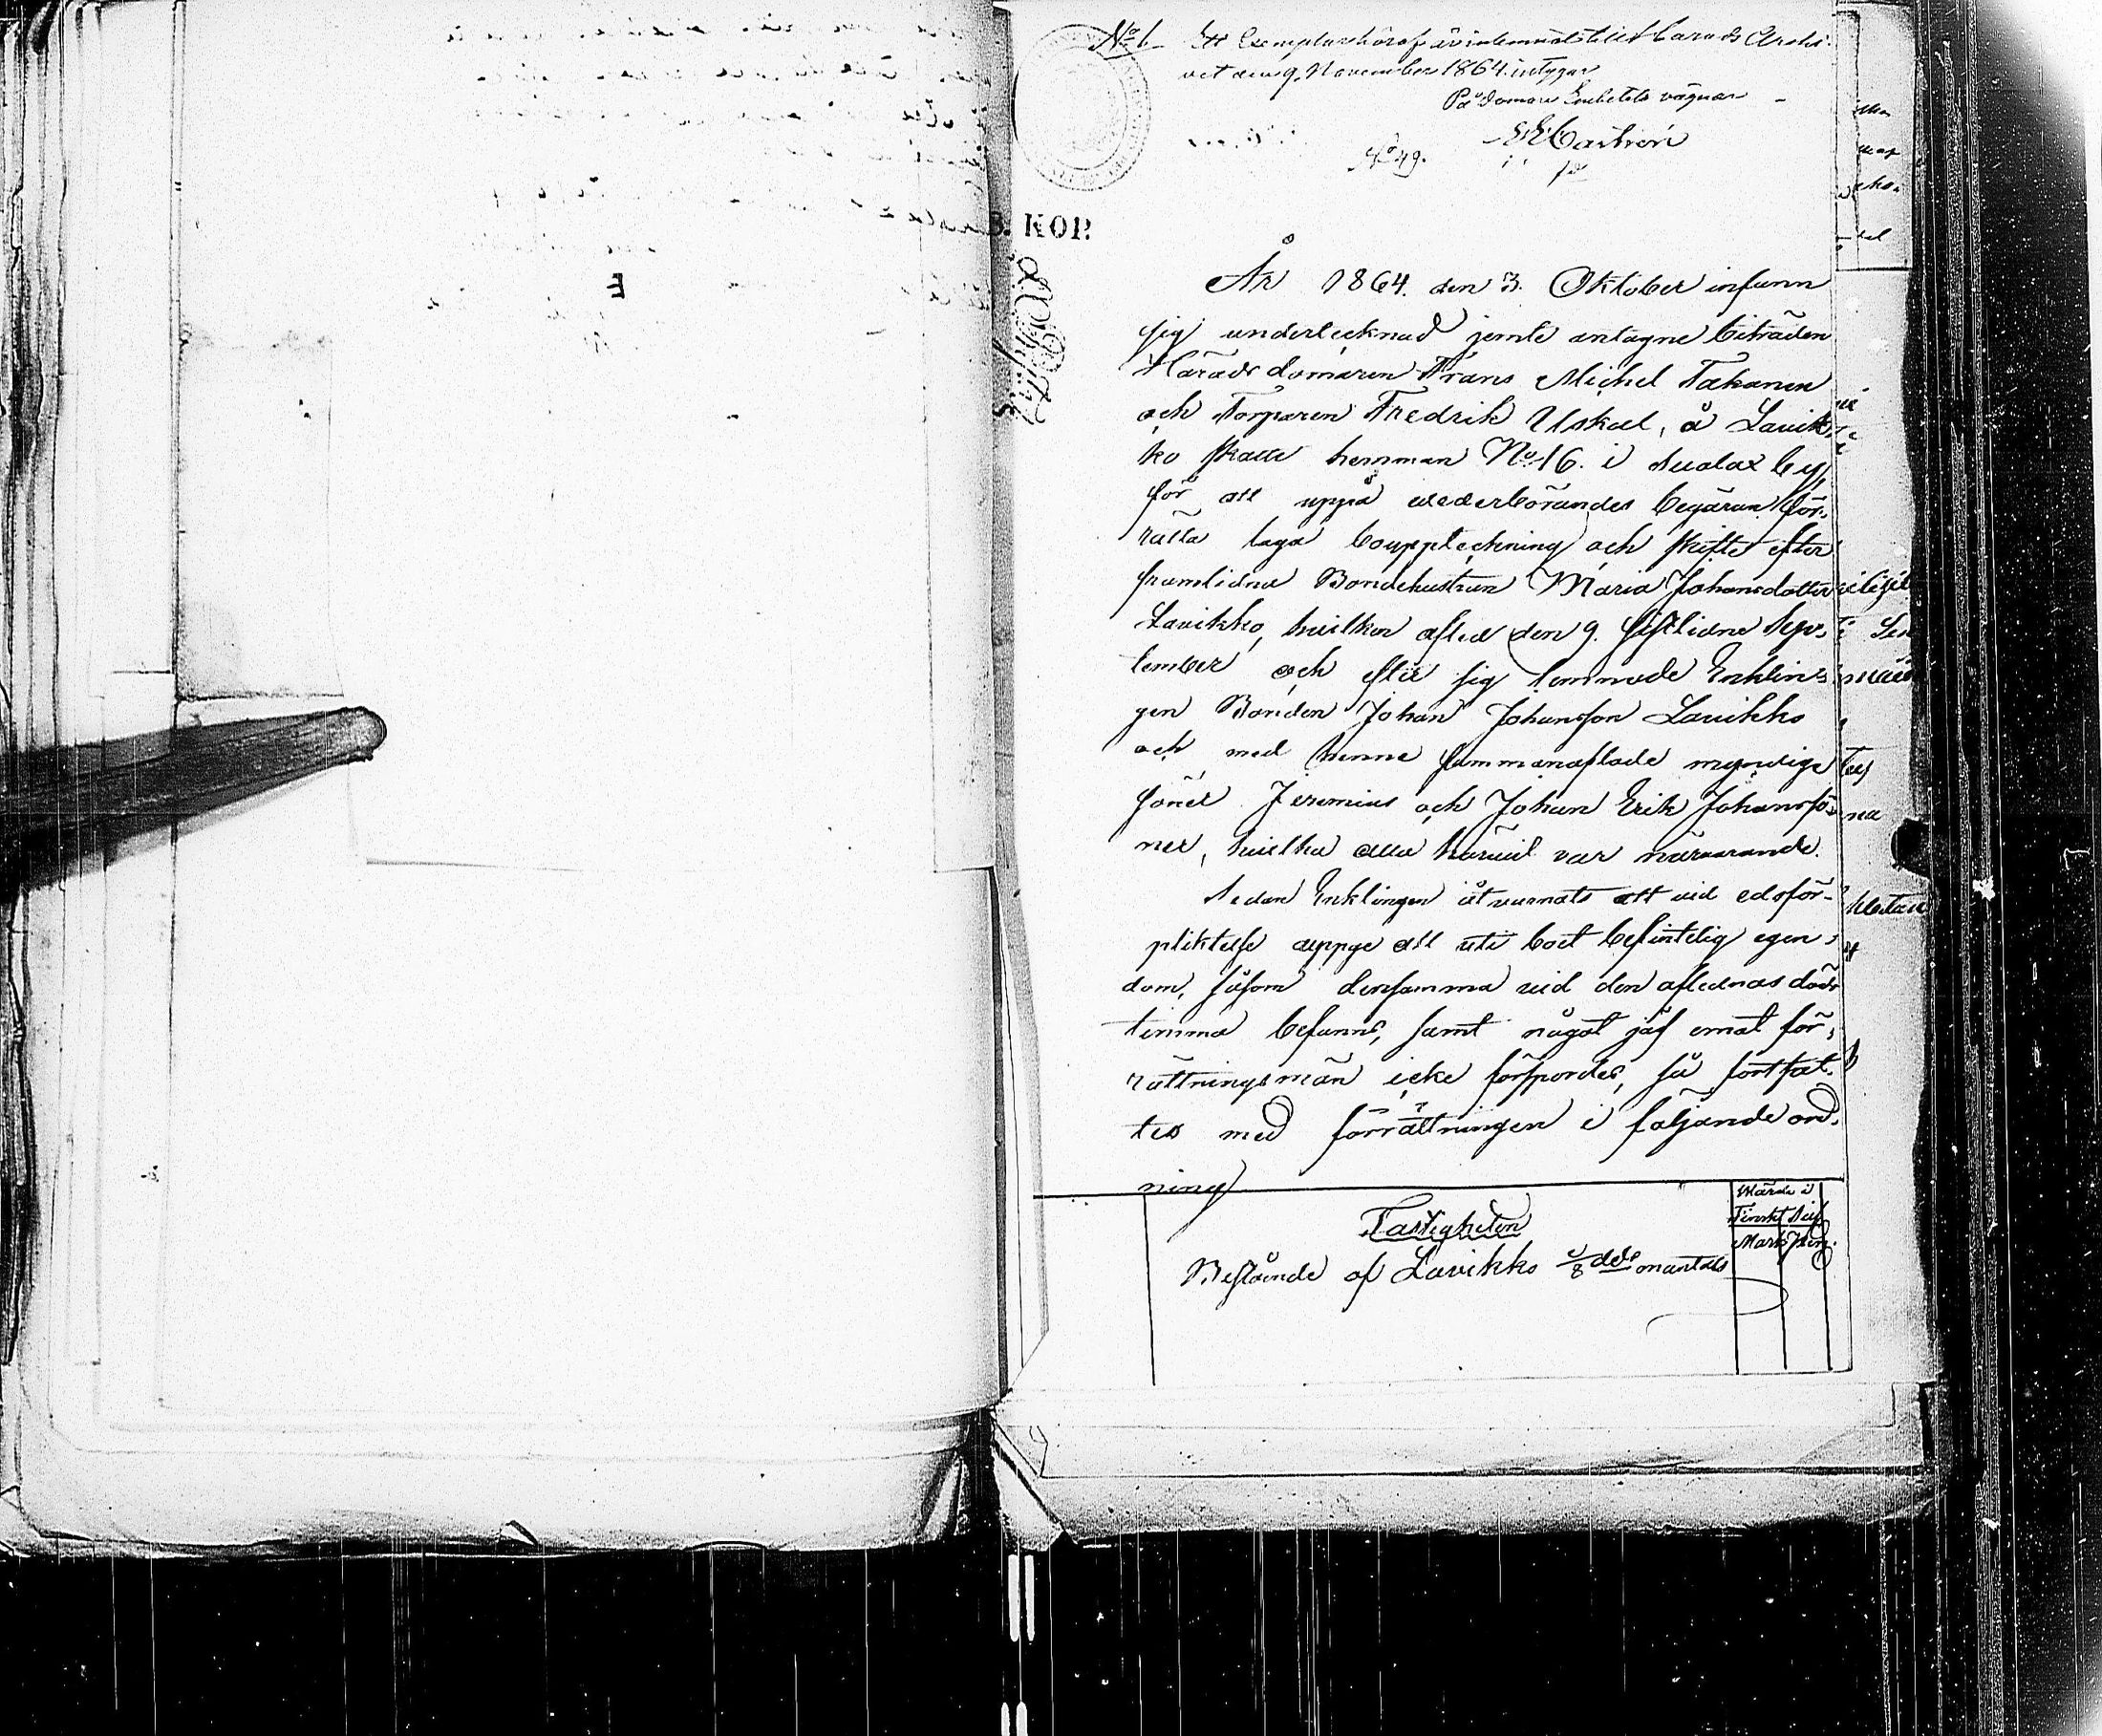 No 1 Ett Exemplar häraf är inlemnadt till Härads Arki-
vet den 9. November 1864. intygar
På Domare Embetets vägnar
Castrén
No 49.
3. KOP.
År 1864. den 3. Oktober infann
sig undertecknad jemte antagne biträden
Härads domaren Frans Michel Takanen
och Torparen Fredrik Uskal, å Lavik-
ko skatte hemman No 16. i Sualax by,
för att uppå wederbörandes begäran för-
rätta laga bouppteckning och skifte efter
framlidna Bondehustrun Maria Johansdotter
Lavikko, hvilken afled den 9. sistlidne Sep-
tember och efter sig lemnade Enklin-
gen Bonden Johan Johansson Lavikko
och med henne sammanaflade myndige
söner Jeremias och Johan Erik Johansso-
ner, hvilka alla härvid var närvarande.
Sedan Enklingen åtvarnats att vid edsför-
pliktelse uppge all uti boet befintelig egen-
dom, såsom densamma vid den aflednas döds
timma befanns, samt något jäf emot för-
rättningsmän icke förspordes, så fortsat-
tes med förrättningen i följande ord-
ning
Wärde i
Finskt Silf
Mark Pen.
Fastigheten
Bestående af Lavikko 1/8 dels mantals